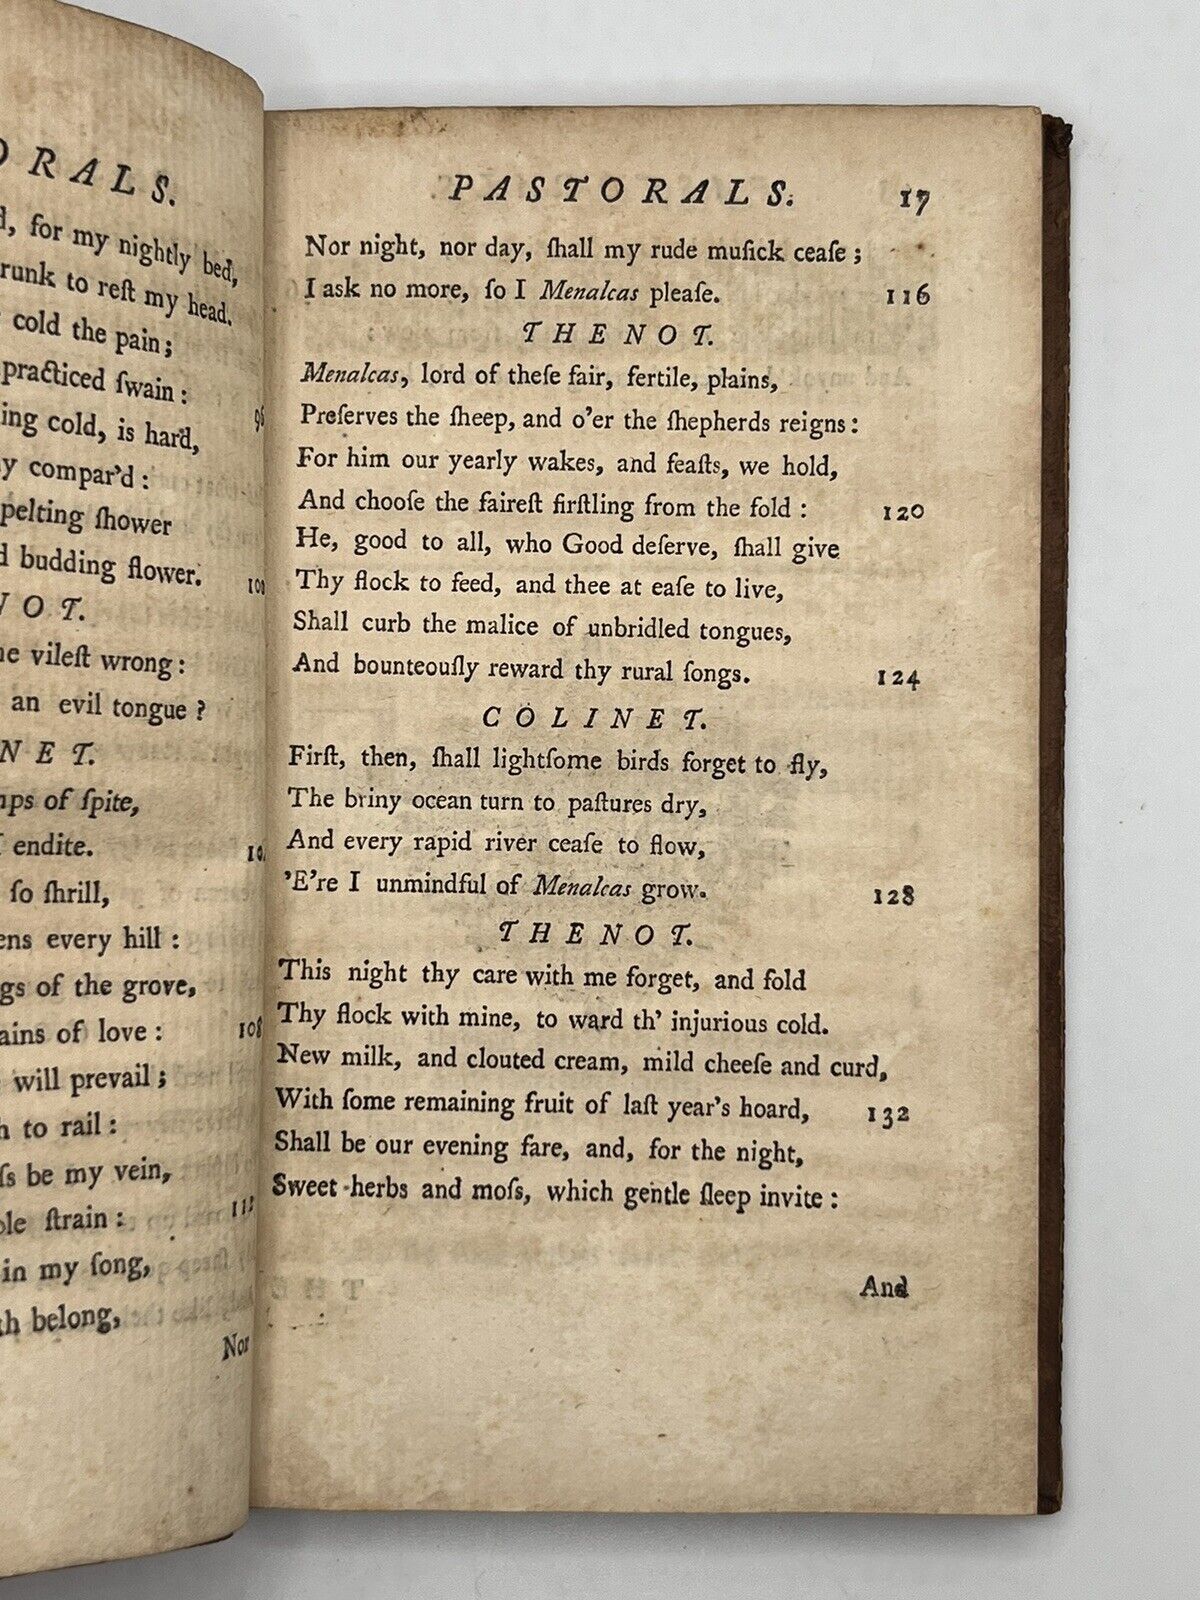 ORALS.
for my nightly bed,
runk to reſt my head.
cold the pain;
practiced ſwain:
ing cold, is hard, 96
y compar'd:
pelting ſhower
d budding flower. 100
NOT.
he vileſt wrong:
an evil tongue?
NET.
mps of ſpite,
I endite. 10
ſo ſhrill,
ens every hill:
gs of the grove,
ains of love: 108
will prevail;
h to rail:
ſs be my vein,
ble ſtrain: 112
in my ſong,
th belong,
Nor
PASTORALS. 17
Nor night, nor day, ſhall my rude muſick ceaſe;
I ask no more, ſo I Menalcas pleaſe. 116
THENOT.
Menalcas, lord of theſe fair, fertile, plains,
Preſerves the ſheep, and o'er the ſhepherds reigns:
For him our yearly wakes, and feaſts, we hold,
And chooſe the faireſt firſtling from the fold: 120
He, good to all, who Good deſerve, ſhall give
Thy flock to feed, and thee at eaſe to live,
Shall curb the malice of unbridled tongues,
And bounteouſly reward thy rural ſongs. 124
COLINET.
Firſt, then, ſhall lightſome birds forget to fly,
The briny ocean turn to paſtures dry,
And every rapid river ceaſe to flow,
'E're I unmindful of Menalcas grow. 128
THENOT.
This night thy care with me forget, and fold
Thy flock with mine, to ward th' injurious cold.
New milk, and clouted cream, mild cheeſe and curd,
With ſome remaining fruit of laſt year's hoard, 132
Shall be our evening fare, and, for the night,
Sweet herbs and moſs, which gentle ſleep invite:
And